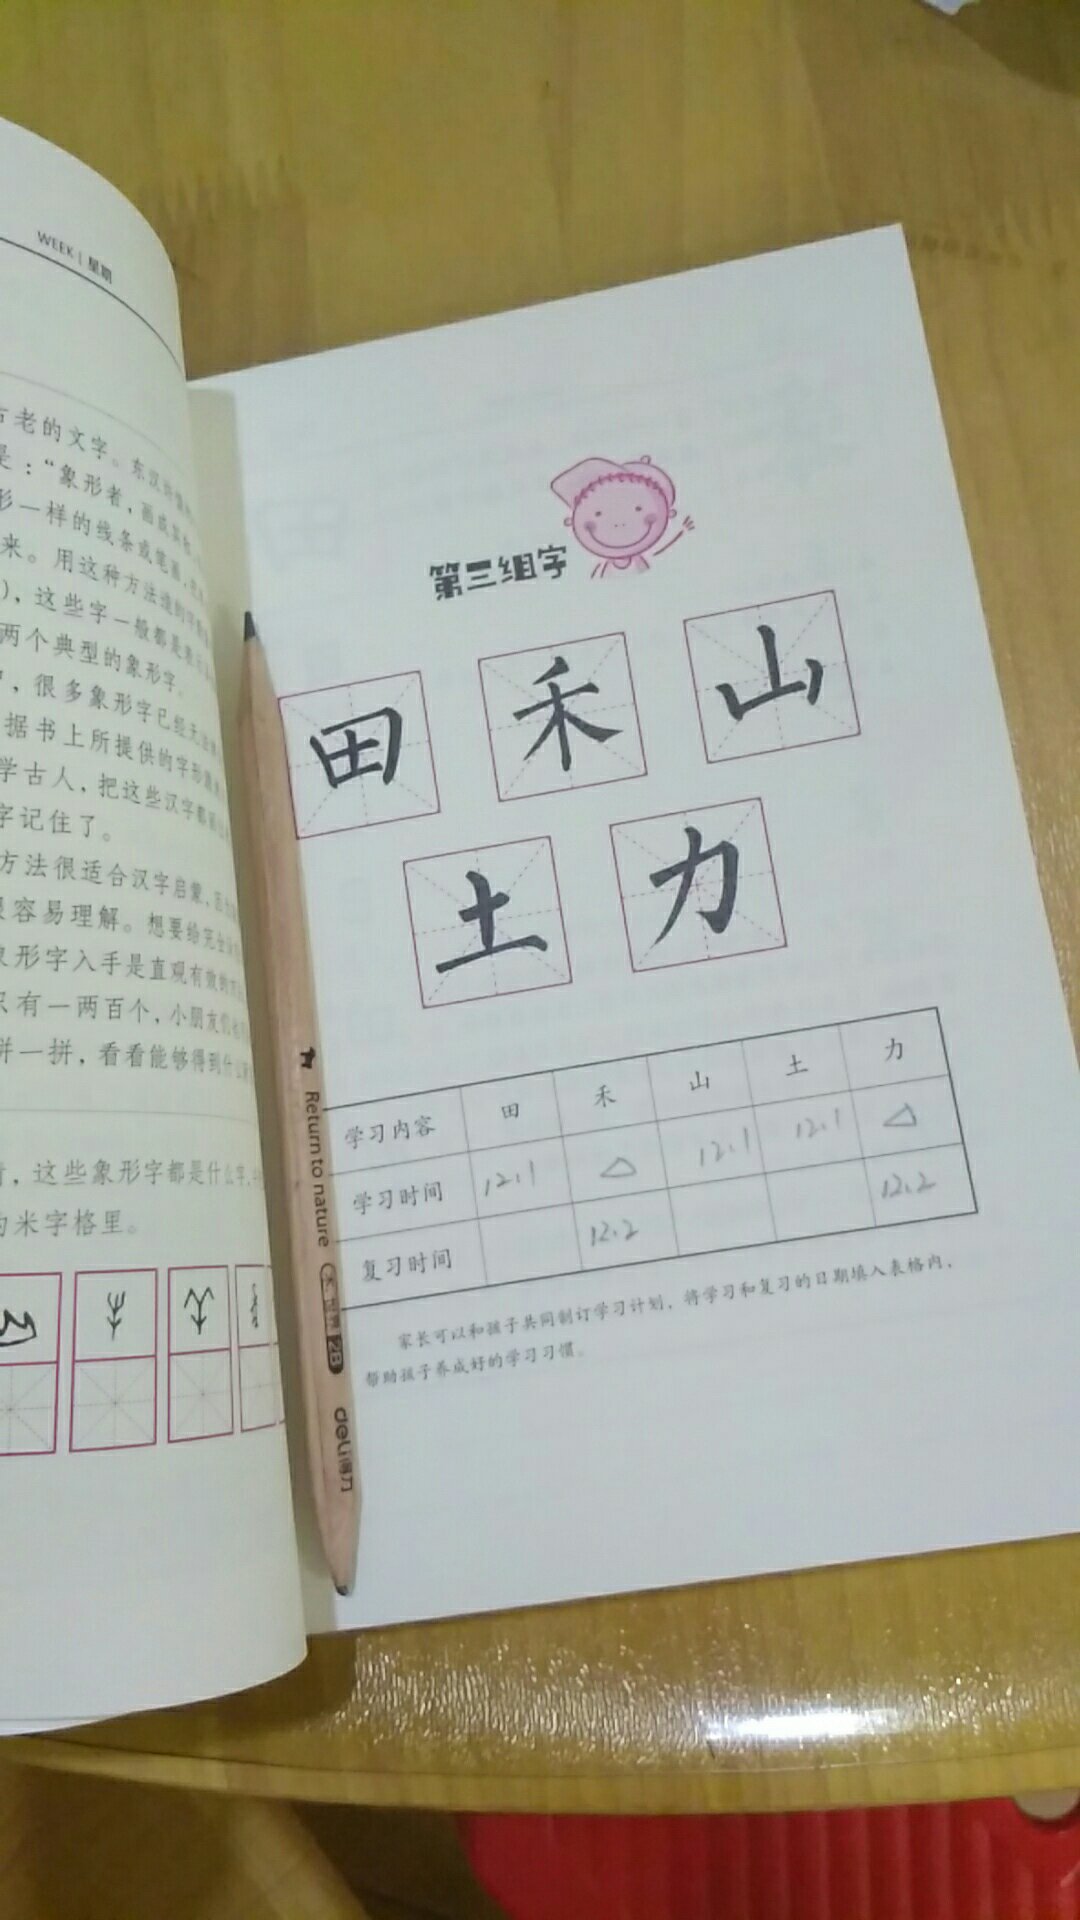 WEEK | 星期
古老的文字。东汉
是：“象形者，画成其物，
形一样的线条或笔画，
来。用这种方法造的字
），这些字一般都是
两个典型的象形字。
，很多象形字已经无法
据书上所提供的字形
学古人，把这些汉字都
字记住了。
方法很适合汉字启蒙，
很容易理解。想要给
象形字入手是直观有效的
只有一两百个，小朋友们
拼一拼，看看能够得到什么
看，这些象形字都是什么字，
的米字格里。
第三组字
田 禾 山
土 力
学习内容 田 禾 山 土 力
学习时间 12.1 △ 12.1 12.1 △
复习时间 12.2 12.2
家长可以和孩子共同制订学习计划，将学习和复习的日期填入表格内，
帮助孩子养成好的学习习惯。
Return to nature 2B deli得力